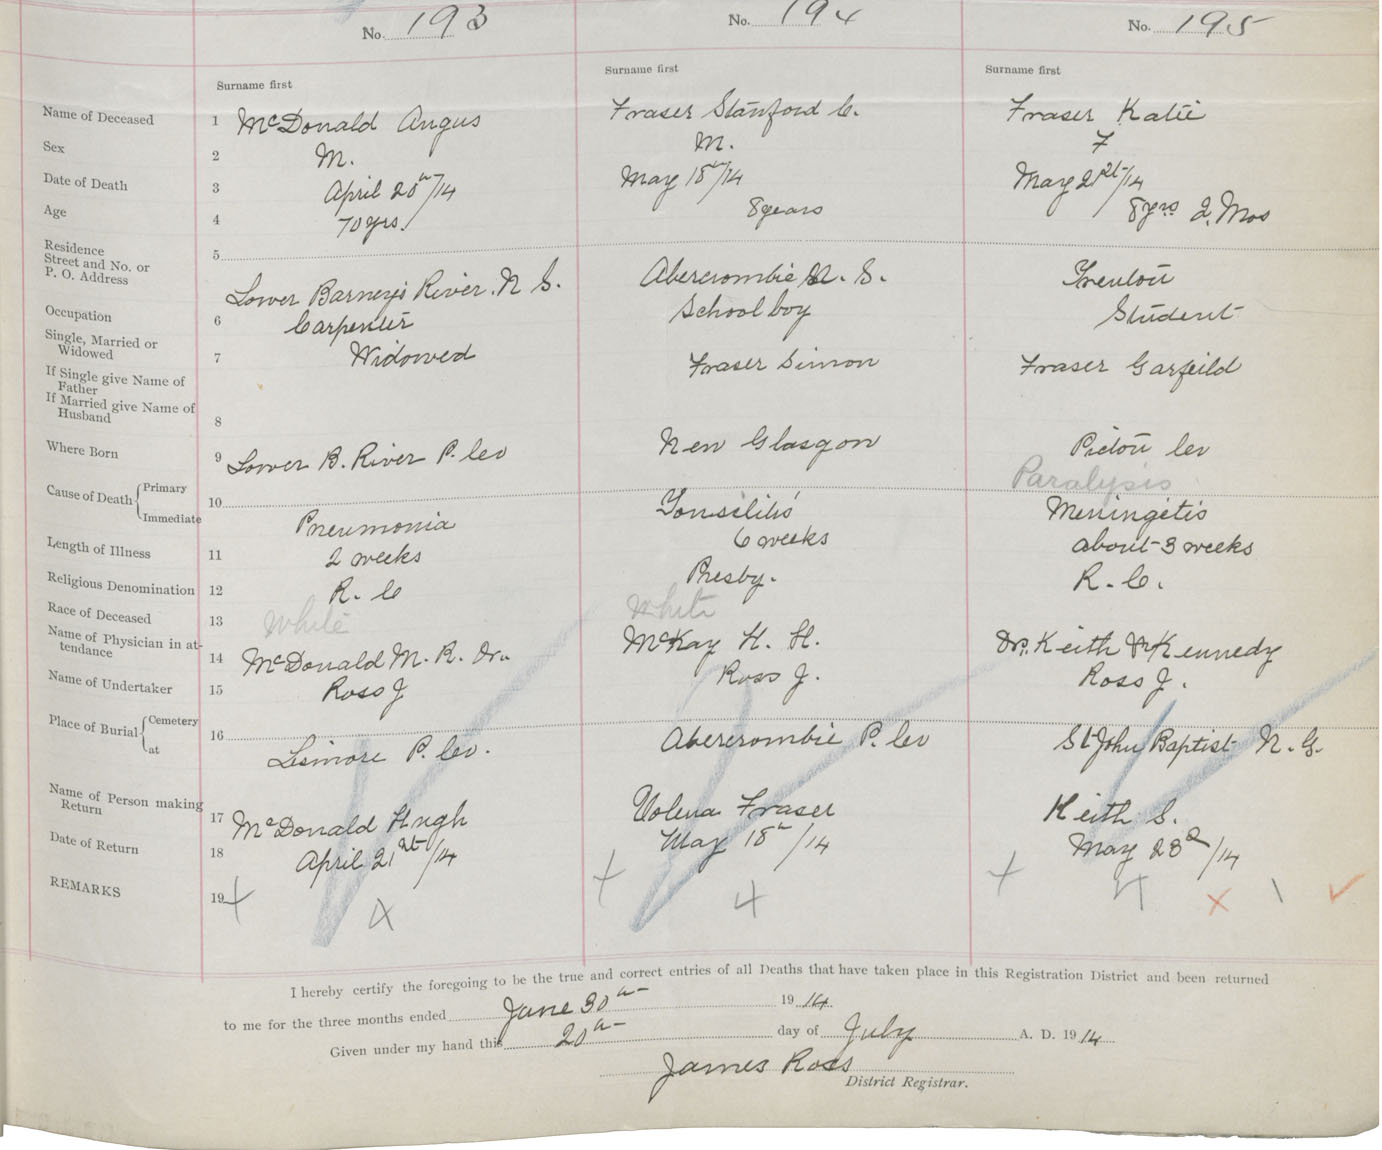 No. 193
No. 194
No. 195
Surname first
Surname first
Surname first
Name of Deceased 1 McDonald Angus
Fraser Stanford C.
Fraser Katie
Sex 2 M.
M.
F
Date of Death 3 April 20th/14
May 18th/14
May 21st/14
Age 4 70 yrs.
8 years
8 yrs 2. Mos
Residence
Street and No. or
P. O. Address
5 Lower Barney's River. N S.
Abercrombie N. S.
Trenton
Occupation 6 Carpenter
School boy
Student
Single, Married or
Widowed
7 Widowed
If Single give Name of
Father
If Married give Name of
Husband
8
Fraser Simon
Fraser Garfeild
Where Born 9 Lower B. River P. Co
New Glasgow
Pictou Co
Cause of Death { Primary
Immediate
10
Paralysis
Pneumonia
Tonsilitis
Meningetis
Length of Illness 11 2 weeks
6 weeks
about 3 weeks
Religious Denomination 12 R. C
Presby.
R. C.
Race of Deceased 13 White
White
Name of Physician in at-
tendance
14 McDonald M. R. Dr.
McKay H. H.
Dr. Keith Dr Kennedy
Name of Undertaker 15 Ross J
Ross J.
Ross J.
Place of Burial { Cemetery
at
16 Lismore P. Co.
Abercrombie P. Co
St John Baptist N. G.
Name of Person making
Return
17 McDonald Hugh
Volena Fraser
Keith S.
Date of Return 18 April 21st/14
May 18th/14
May 23d/14
REMARKS 19
I hereby certify the foregoing to be the true and correct entries of all Deaths that have taken place in this Registration District and been returned
to me for the three months ended June 30th 1914
Given under my hand this 20th day of July A. D. 1914
James Ross
District Registrar.